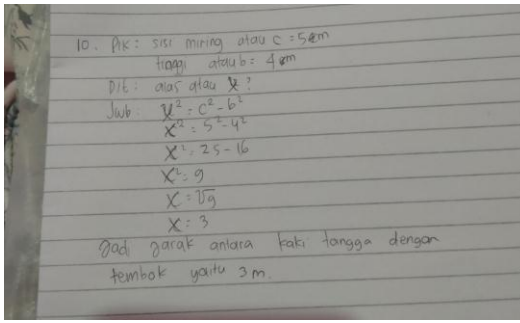 10. Dik : sisi miring atau c = 5 m
tinggi atau b = 4 m
Dit : alas atau x ?
Jwb : x² = c² - b²
x² = 5² - 4²
x² = 25 - 16
x² = 9
x = √9
x = 3
Jadi jarak antara kaki tangga dengan
tembok yaitu 3 m.